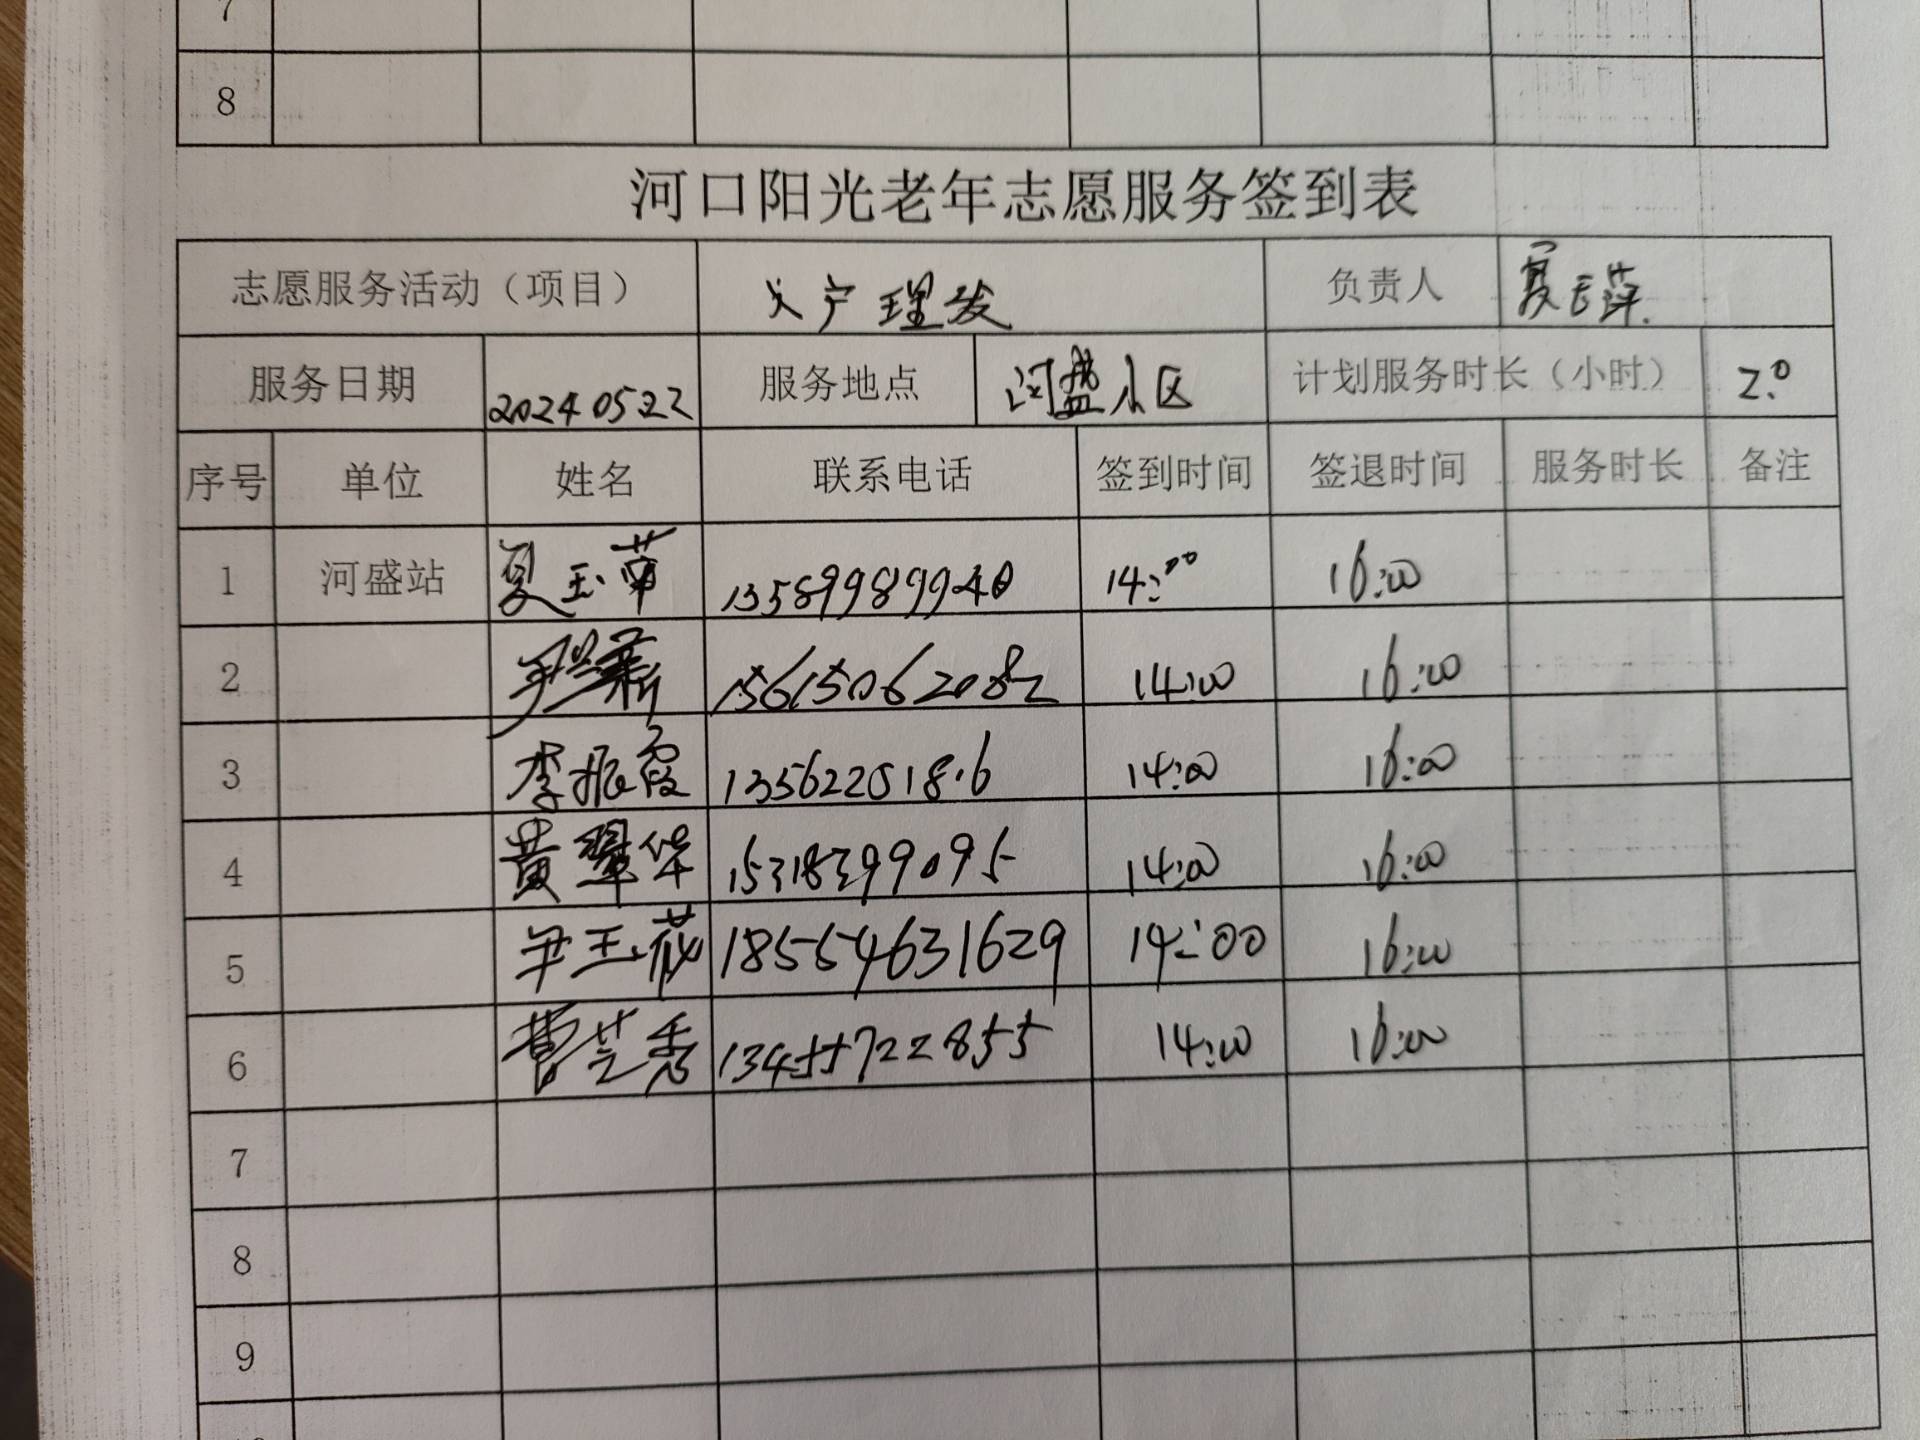 7
8
河口阳光老年志愿服务签到表
志愿服务活动（项目） 入户理发 负责人
服务日期 20240522 服务地点 河盛小区 计划服务时长（小时） 2.0
序号 单位 姓名 联系电话 签到时间 签退时间 服务时长 备注
1 河盛站 夏玉萍 14:00 16:00
2 15615062082 14:00 16:00
3 李振霞 14:00 16:00
4 黄翠华 15318399095 14:00 16:00
5 尹玉花 18554631629 14:00 16:00
6 曹芝秀 13455722855 14:00 16:00
7
8
9